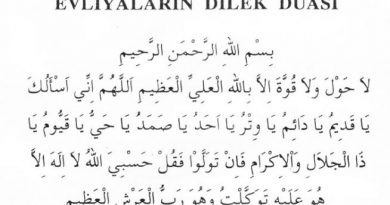 EVLİYALARIN DİLEK DUASI
بِسْمِ اللهِ الرَّحْمَنِ الرَّحِيمِ
لاَ حَوْلَ وَلاَ قُوَّةَ اِلاَّ بِاللهِ الْعَلِيِّ الْعَظِيمِ اَللَّهُمَّ اِنِّي اَسْأَلُكَ
يَا قَدِيمُ يَا دَائِمُ يَا وِتْرُ يَا اَحَدُ يَا صَمَدُ يَا حَيُّ يَا قَيُّومُ يَا
ذَا الْجَلاَلِ وَالْاِكْرَامِ فَاِنْ تَوَلَّوْا فَقُلْ حَسْبِيَ اللهُ لاَ اِلَهَ اِلاَّ
هُوَ عَلَيْهِ تَوَكَّلْتُ وَهُوَ رَبُّ الْعَرْشِ الْعَظِيمِ